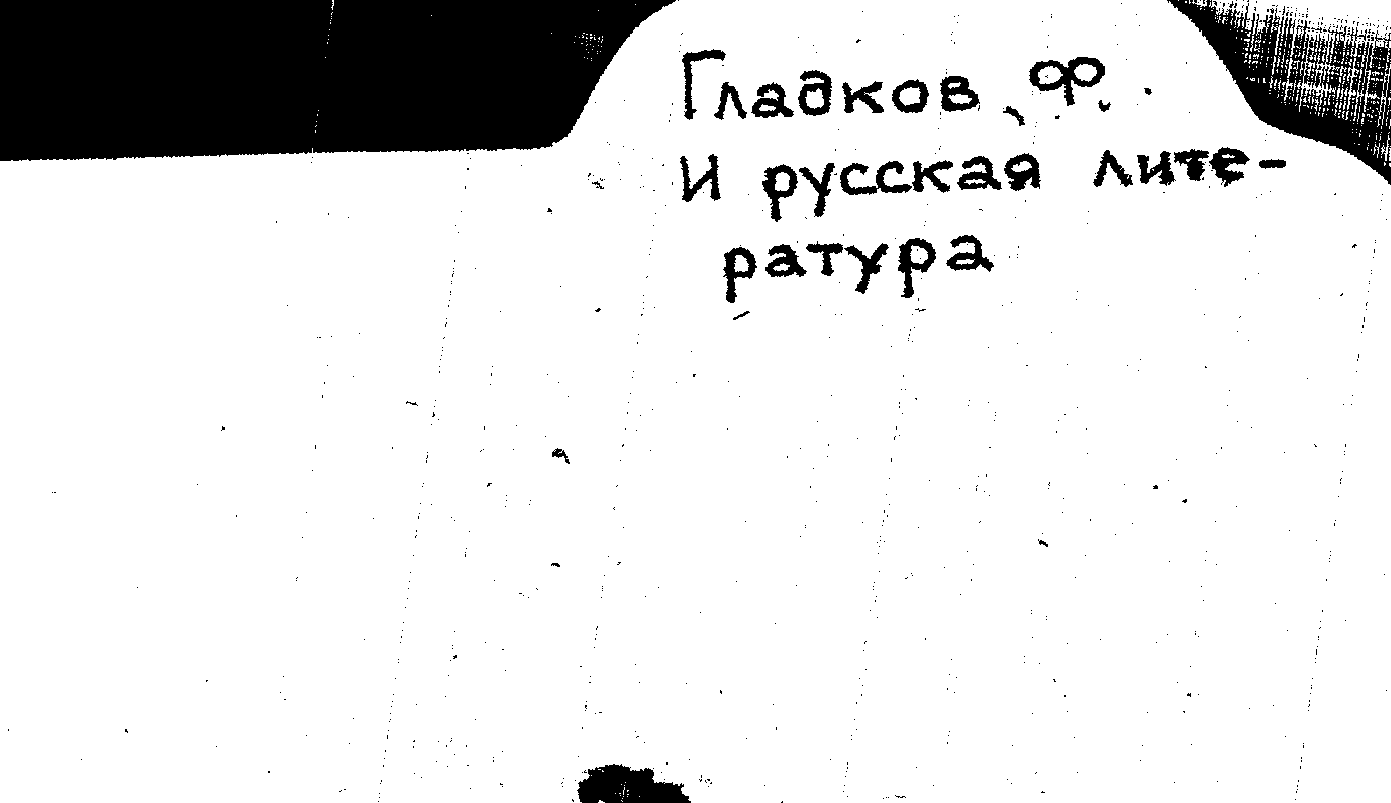 Гладков, Ф.
И русская лите-
ратура